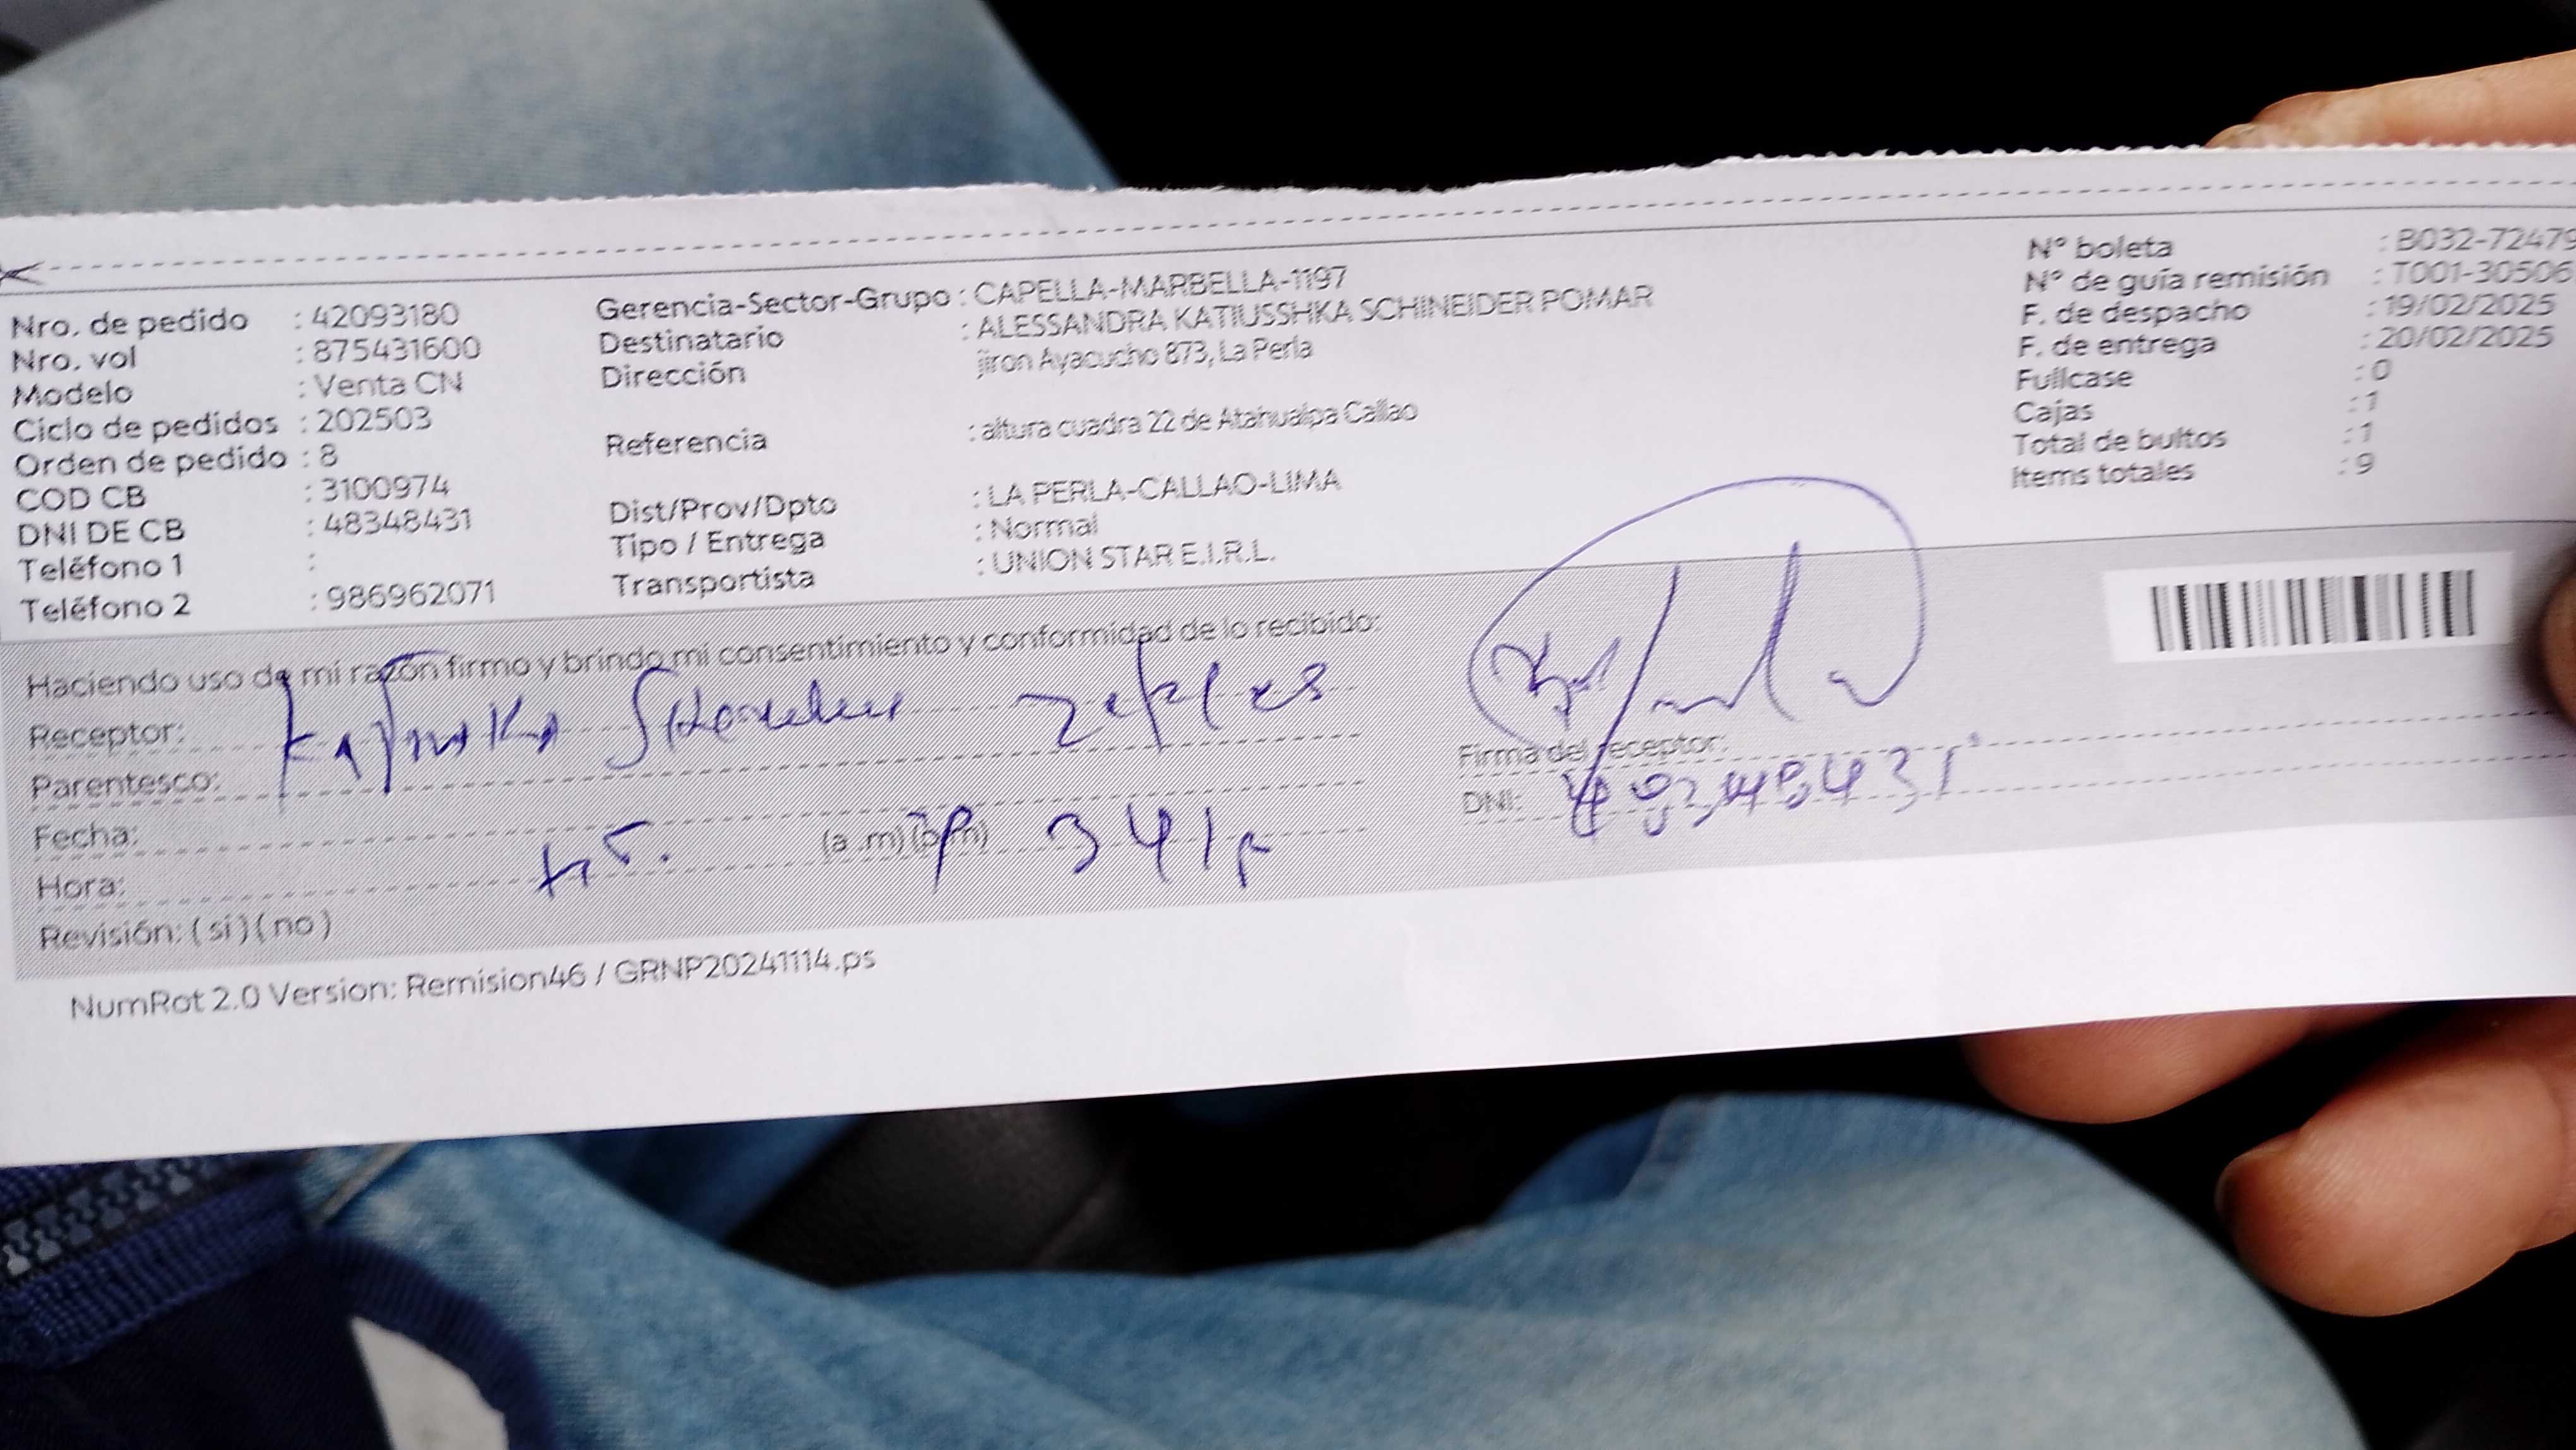 Nro. de pedido : 42093180
Nro. vol : 875431600
Modelo : Venta CN
Ciclo de pedidos : 202503
Orden de pedido : 8
COD CB : 3100974
DNI DE CB : 48348431
Teléfono 1 :
Teléfono 2 : 986962071
Gerencia-Sector-Grupo : CAPELLA-MARBELLA-1197
Destinatario : ALESSANDRA KATIUSSHKA SCHINEIDER POMAR
Dirección jiron Ayacucho 873, La Perla
Referencia : altura cuadra 22 de Atahualpa Callao
Dist/Prov/Dpto : LA PERLA-CALLAO-LIMA
Tipo / Entrega : Normal
Transportista : UNION STAR E.I.R.L.
N° boleta : B032-72479
N° de guía remisión : T001-30506
F. de despacho : 19/02/2025
F. de entrega : 20/02/2025
Fullcase : 0
Cajas : 1
Total de bultos : 1
Items totales : 9
Haciendo uso de mi razón firmo y brindo mi consentimiento y conformidad de lo recibido:
Receptor:
Parentesco:
Fecha:
Hora: (a .m) (p.m) 341p
Revisión: ( si ) ( no )
Firma del receptor:
DNI: 48348431
NumRot 2.0 Version: Remision46 / GRNP20241114.ps